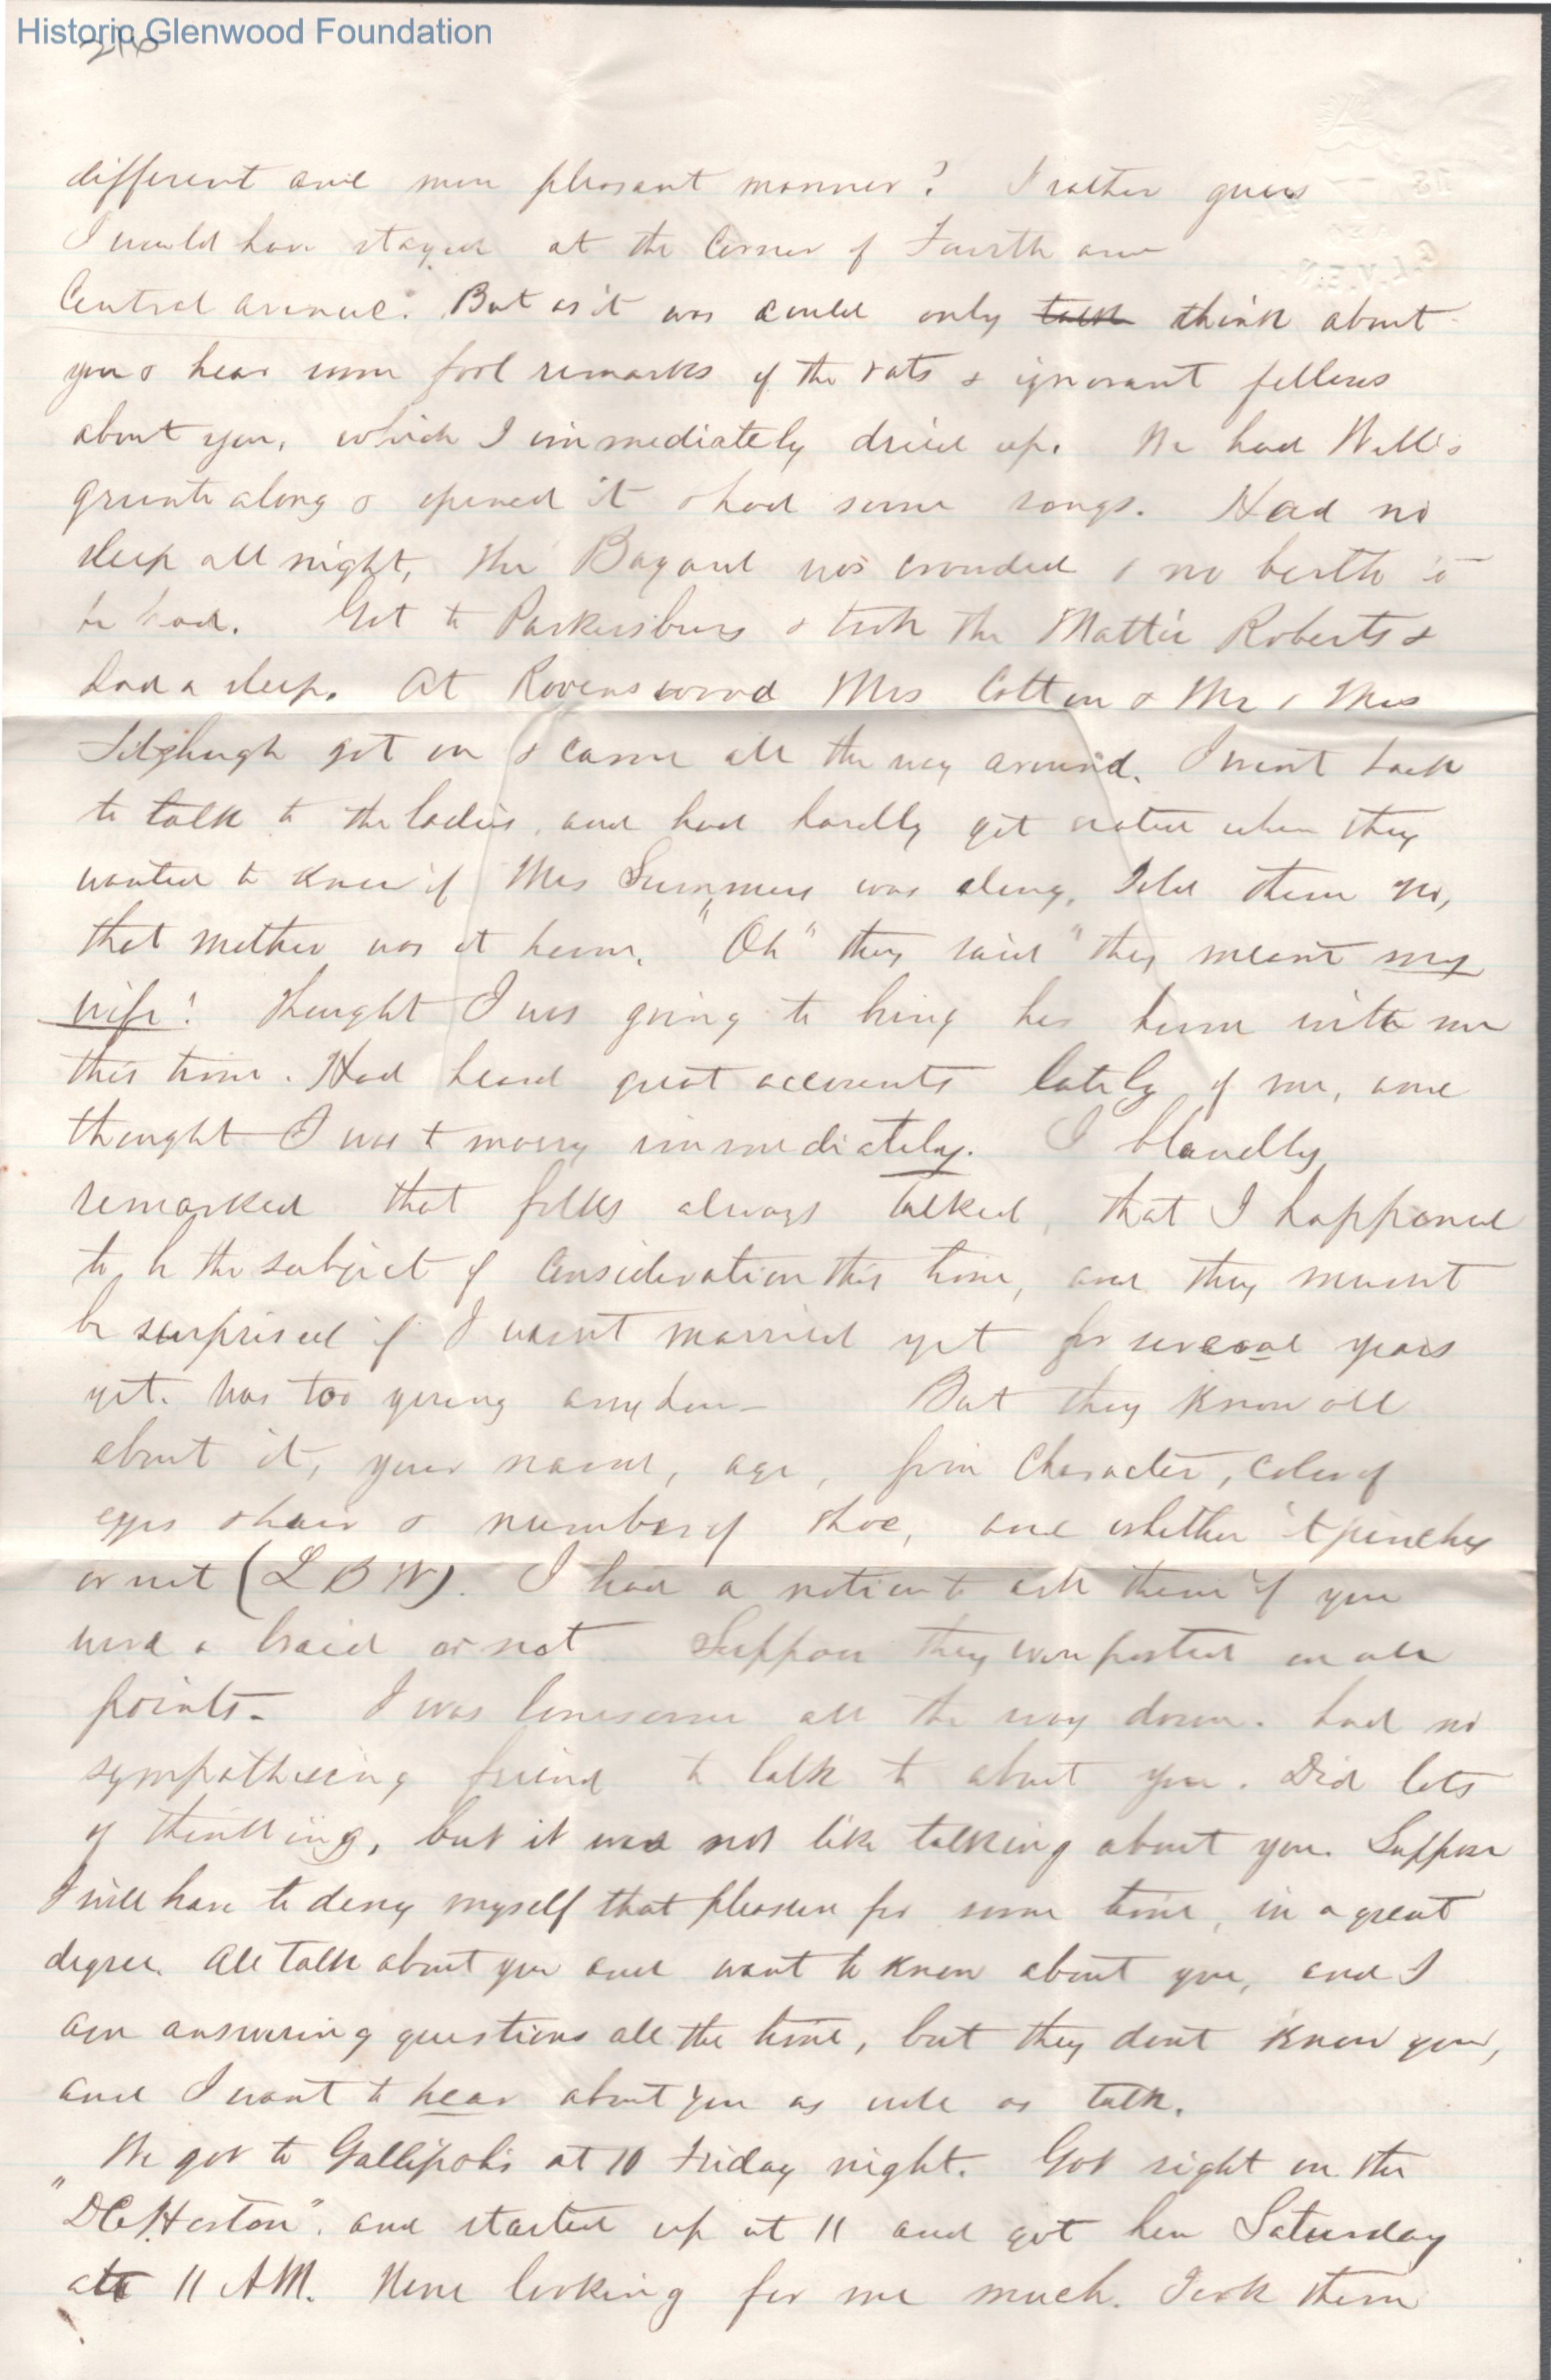 Historic Glenwood Foundation
different and more pleasant manner? I rather guess
I would have stayed at the Corner of Fourth and
Central avenue. But as it was could only talk think about
you & hear some fool remarks of the rats & ignorant fellows
about you, which I immediately dried up. We had Will's
along & opened it & had some songs. Had no
sleep all night, the Bayard was crowded & no berth to
be had. Got to Parkersburg & took the Mattie Roberts &
had a sleep. At Ravenswood Mrs Cotton & Mr & Mrs
Fitzhugh got on & came all the way around. I went back
to talk to the ladies, and had hardly got seated when they
wanted to know if Mrs Summers was along, Told them no,
that mother was at home. "Oh" they said "they meant my
wife! Thought I was going to bring her home with me
this time. Had heard great accounts lately of me, and
thought I was to marry immediately. I blandly
remarked that folks always talked, that I happened
to be the subject of Consideration this time, and they mustnt
be surprised if I wasnt married yet for several years
yet. Was too young anyhow— But they know all
about it, your name, age, form Character, color of
eyes & hair & number of shoe, and whether it pinches
or not (L B W). I had a notion to ask them if you
wore a braid or not Suppose they were posted on all
points— I was lonesome all the way down. had no
sympathizing friend to talk to about you. Did lots
of thinking, but it was not like talking about you. Suppose
I will have to deny myself that pleasure for some time, in a great
degree. All talk about you and want to know about you, and I
am answering questions all the time, but they dont know you,
and I want to hear about you as well as talk.
We got to Gallipolis at 10 Friday night. Got right on the
"D C Horton", and started up at 11 and got here Saturday
at 11 AM. None looking for me much. Took them